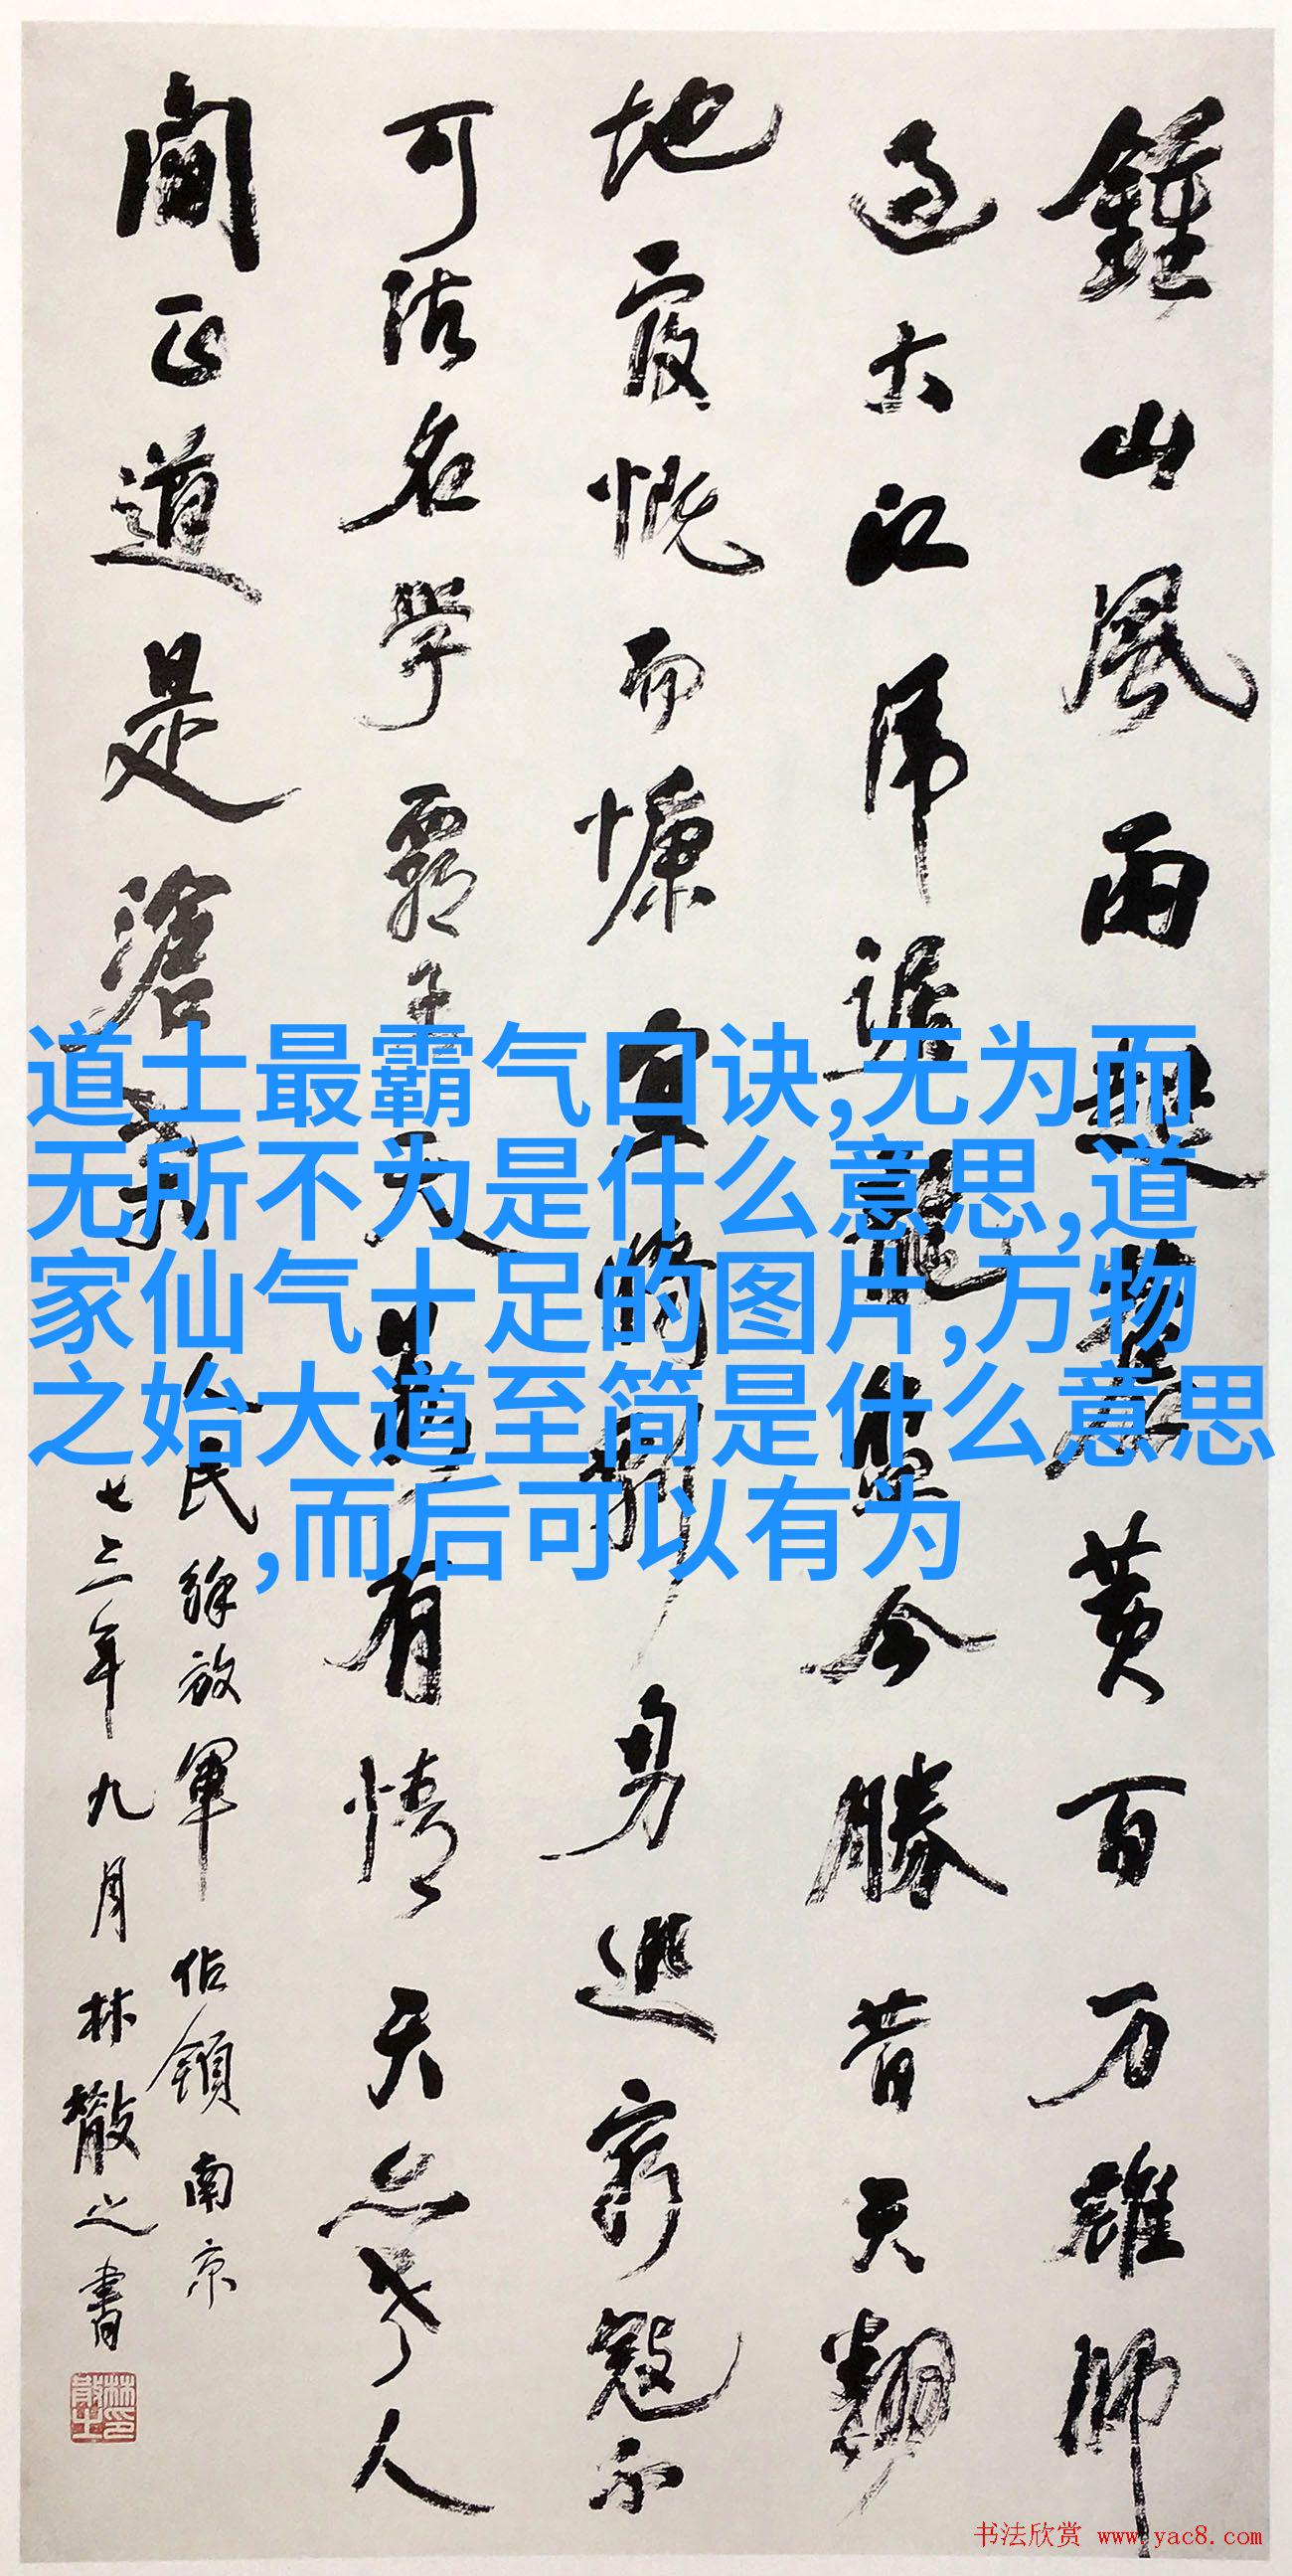 鍾山風雨起蒼黄百万雄師
过大江虎踞龍盤今勝昔天翻
地覆慨而慷宜將剩勇追窮寇不
可沽名學霸王天若有情天亦老人
間正道是滄桑
人民解放軍佔領南京
七三年九月林散之書
林散之印
道士最霸气口诀,无为而
无所不为是什么意思,道
家仙气十足的图片,万物
之始大道至简是什么意思
,而后可以有为
书法欣赏 www.yac8.com